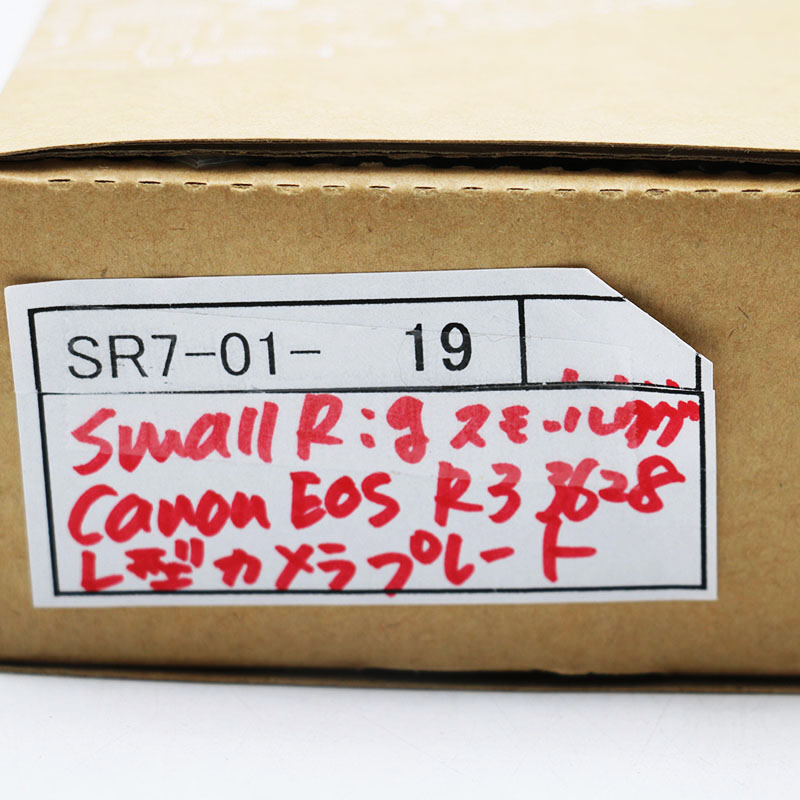 SR7-01- 19
Small Rig スモールリグ
Canon EOS R3 3628
L型カメラプレート